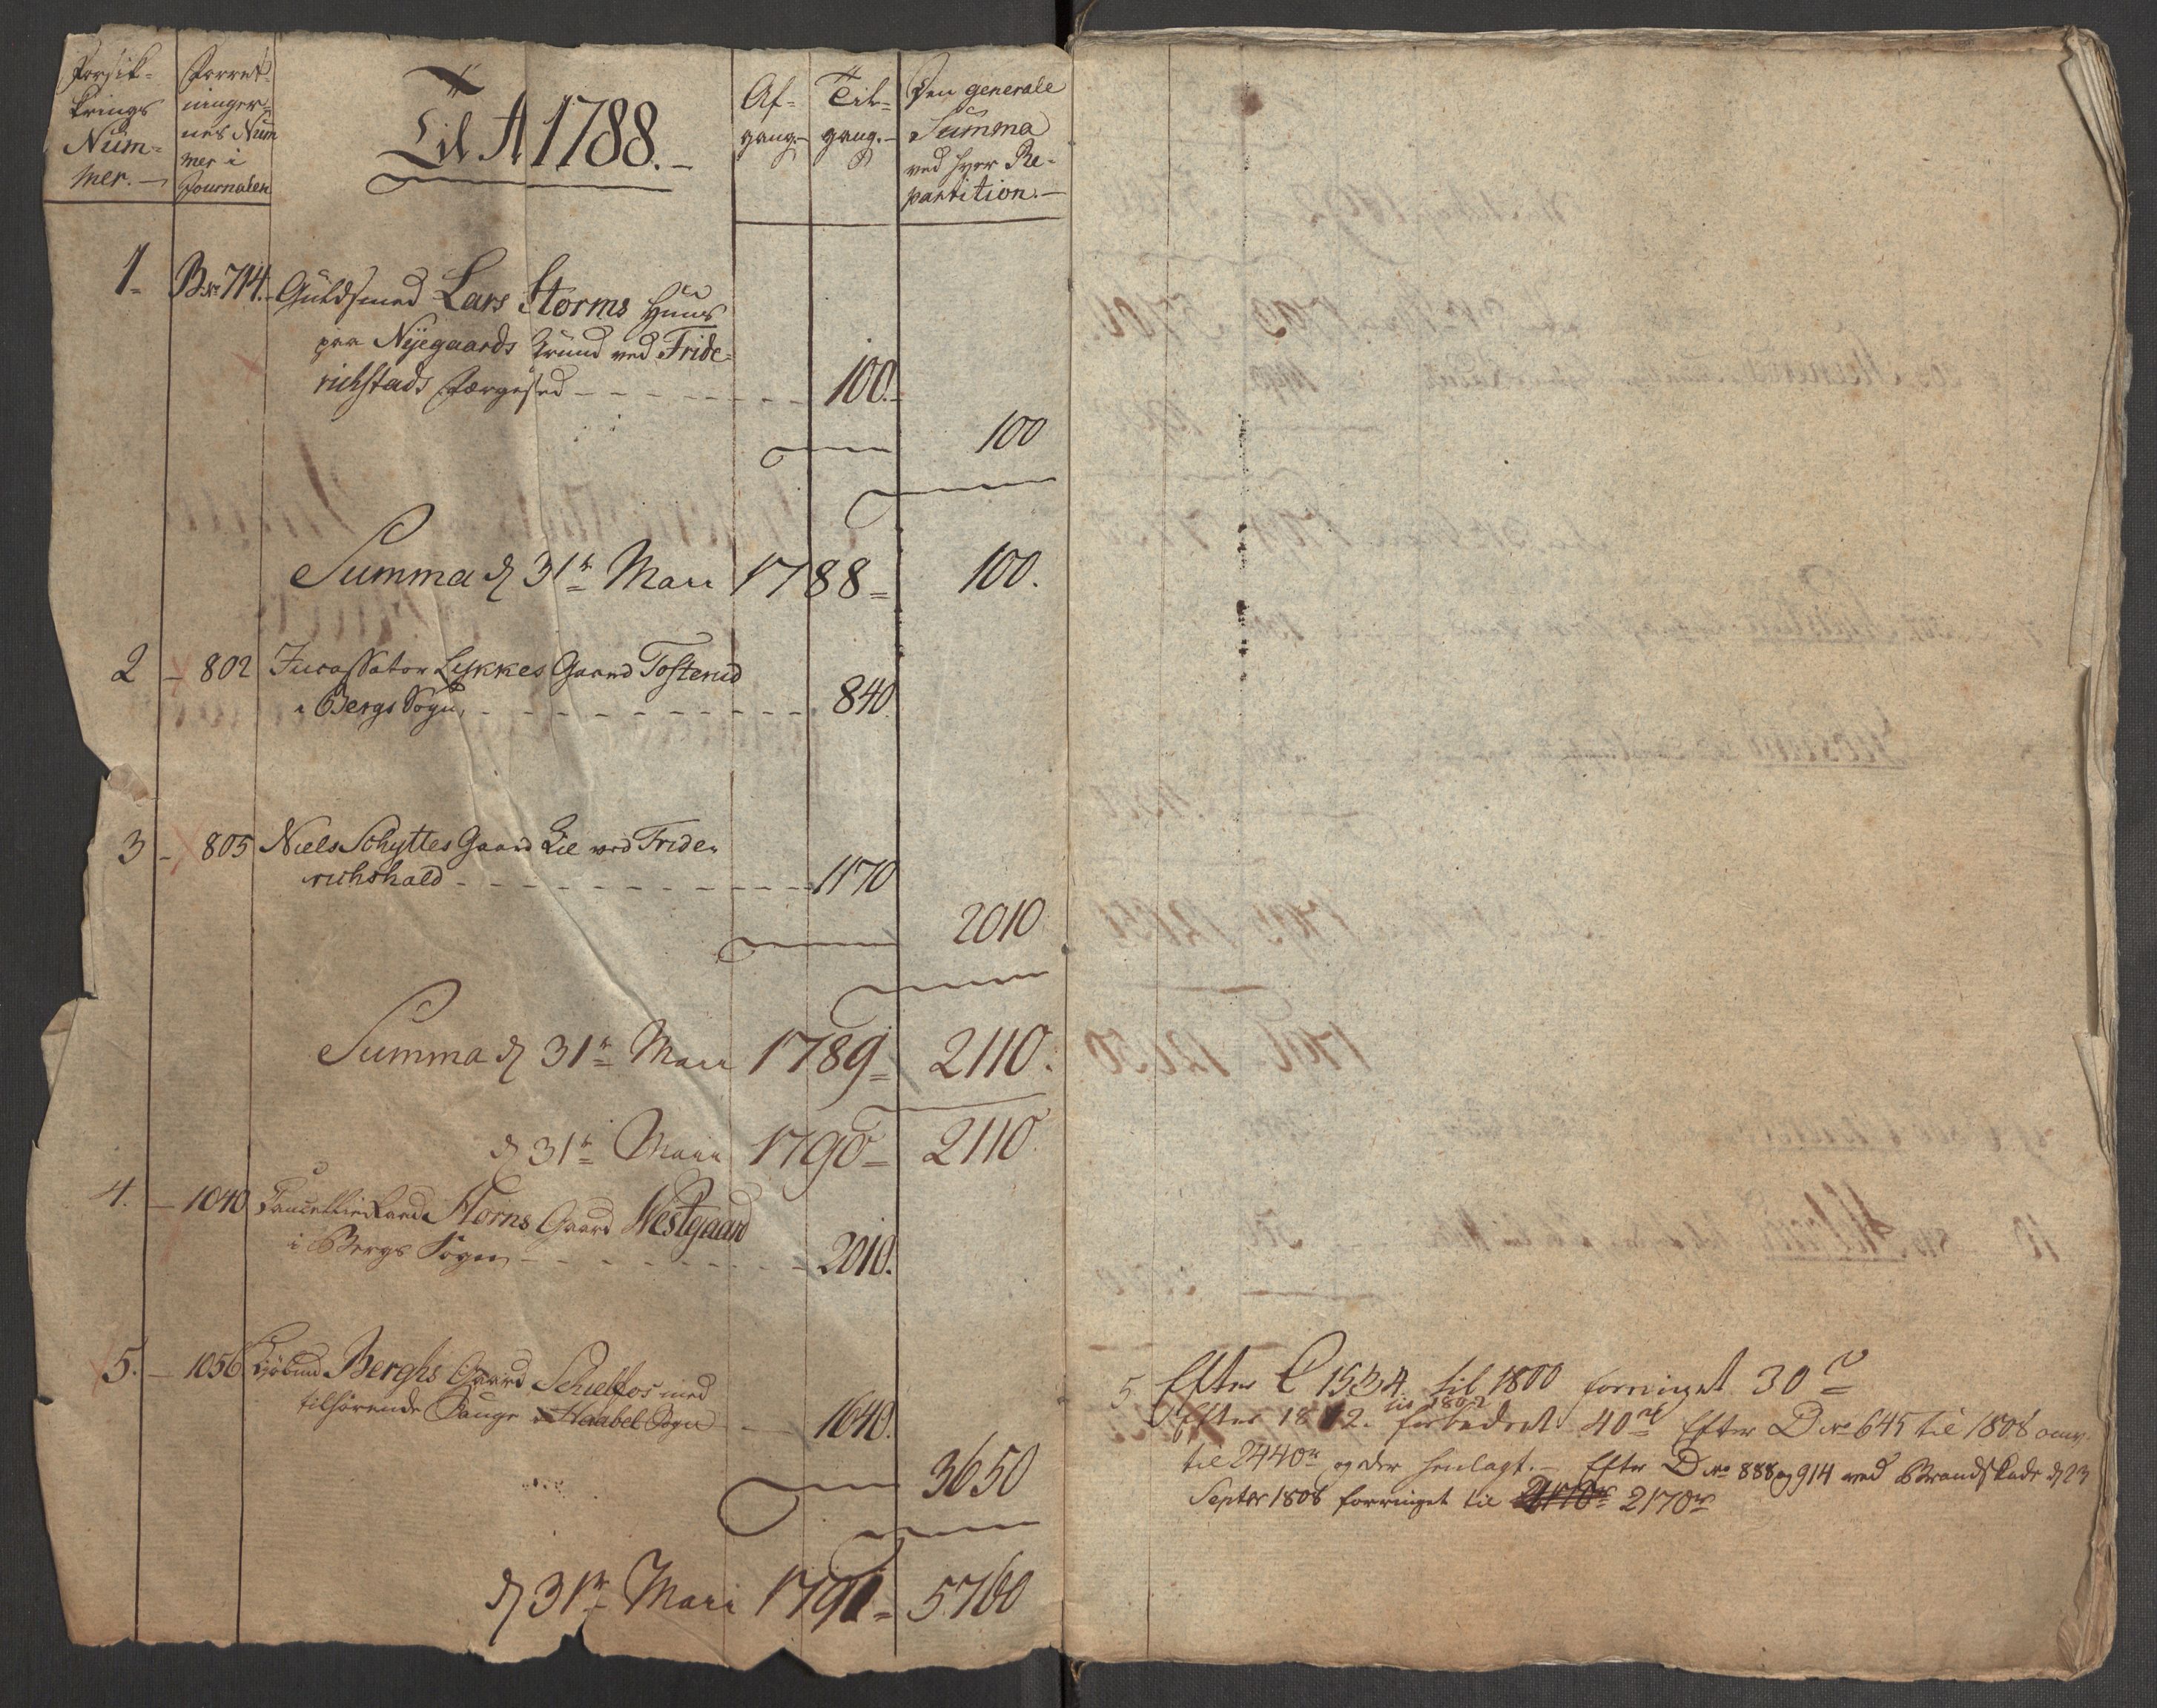 Forsik-
krings
Num-
mer. —
Forret-
ninger-
nes Num
mer i
Journalen
Til A 1788. —
Af-
gang. —
Til-
gang. —
Den generale
Summa
ved hver Re-
partition. —
1. B No 714. Guldsmed Lars Storms Huus
paa Nÿegaards Grund ved Fride-
richstads Færgested - - - - - - - - 100. -
100
Summa d 31te Maii 1788 = 100.
2 - 802 Incassator Lykkes Gaard Tosterud
i Bergs Sogn, - - - - - - - - - - 840.
3 - 805 Niels Schyttes Gaard Lie ved Fride-
richshald - - - - - - - - - - - 1170
2010
Summa d 31te Maii 1789 = 2110.
d 31te Maii 1790 = 2110.
4. - 1040 Cancellieraad Storms Gaard Westgaard
i Bergs Sogn - - - - - - - - 2010.
5. - 1056 Kiøbmd Berghs Gaard Schieltos med
tilhørende Sauge i Haabel Sogn - - 1640.
3650
d 31te Maii 1791 = 5760
5 Efter C 1534. til 1800 forringet 30 rd
til 1802
Efter 1812. forbedret 40 rd Efter D No 645 til 1808 omv.
til 2440 rd og der henlagt. - Efter D No 888 og 914 ved Brandskade d 23
Septbr 1808 forringet til 2170 rd